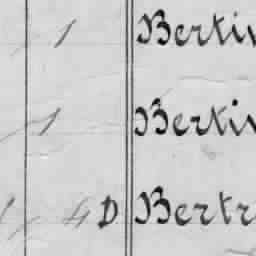 1 Berti
1 Berti
4 D Bertr